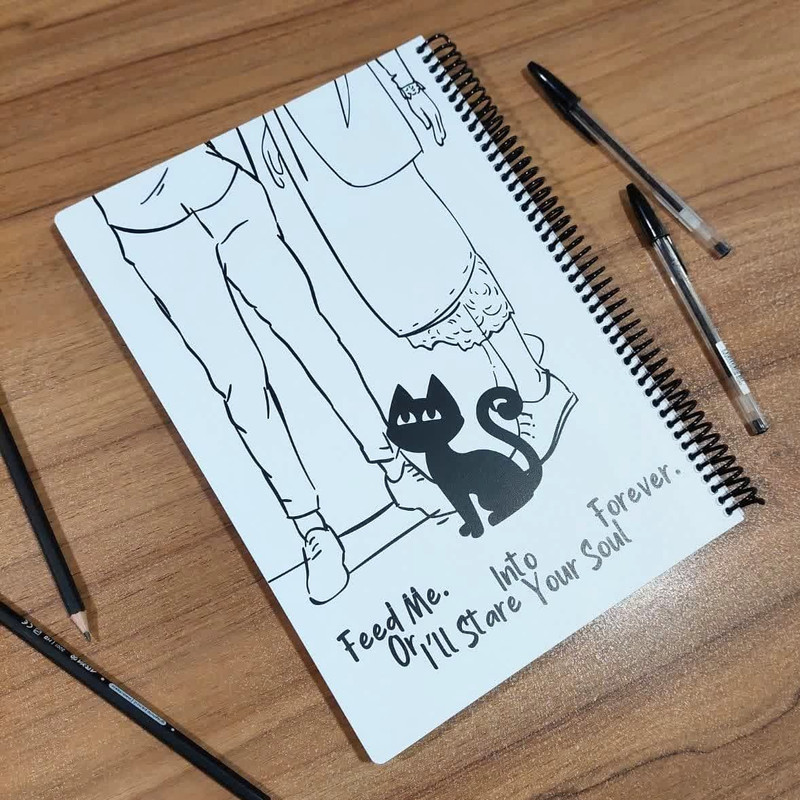 Feed Me.
Or I'll Stare Into Your Soul Forever.